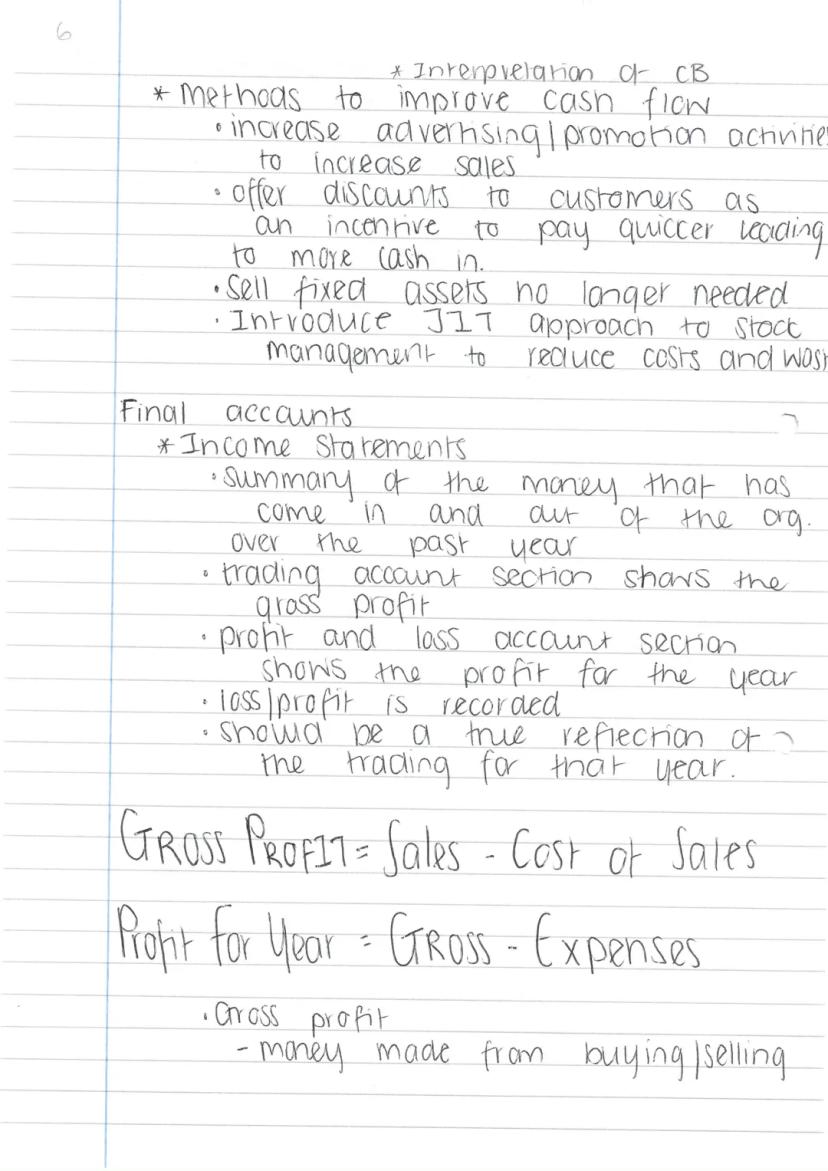 6
* Interpretation of CB
* Methods to improve cash flow
• increase advertising/promotion activities
to increase sales
• offer discounts to customers as
an incentive to pay quiccer leading
to more cash in.
• Sell fixed assets no longer needed
• Introduce JIT approach to stock
management to reduce costs and
Final accounts
* Income Statements
• summary of the money that has
come in and out of the org.
over the past year
• trading account section shows the
gross profit
• profit and loss account section
shows the profit for the year
• loss/profit is recorded
• should be a true reflection of
the trading for that year.
GROSS PROFIT = Sales - Cost of Sales
Profit for Year = GROSS - Expenses
• Gross profit
- money made from buying/selling